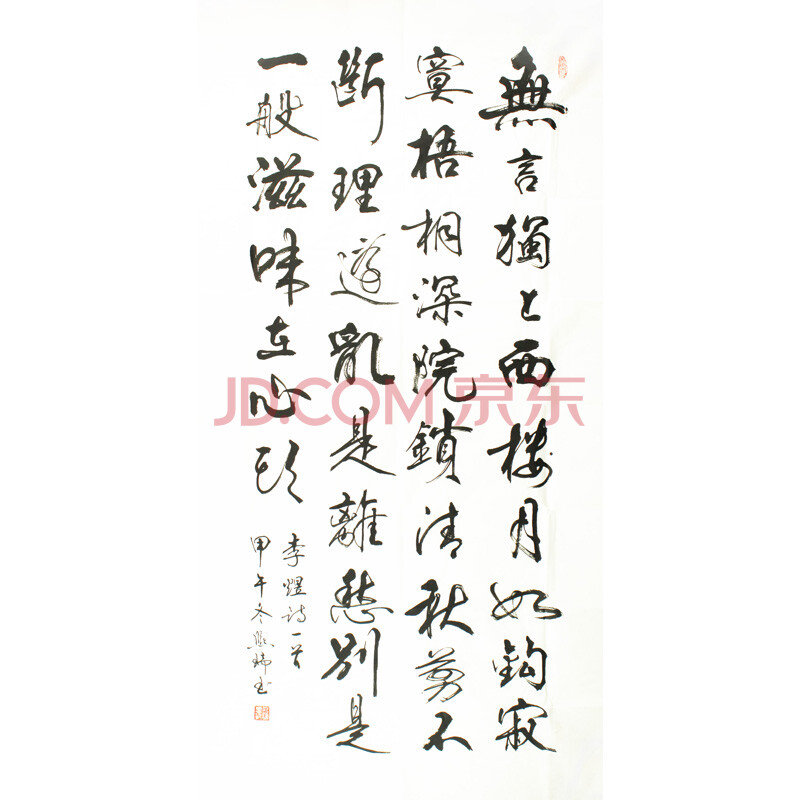 無言獨上西樓月如鈎寂
寞梧桐深院鎖清秋剪不
斷理還亂是離愁別是
一般滋味在心頭
李煜詩一首
甲午冬瑞书
JD.COM 京东